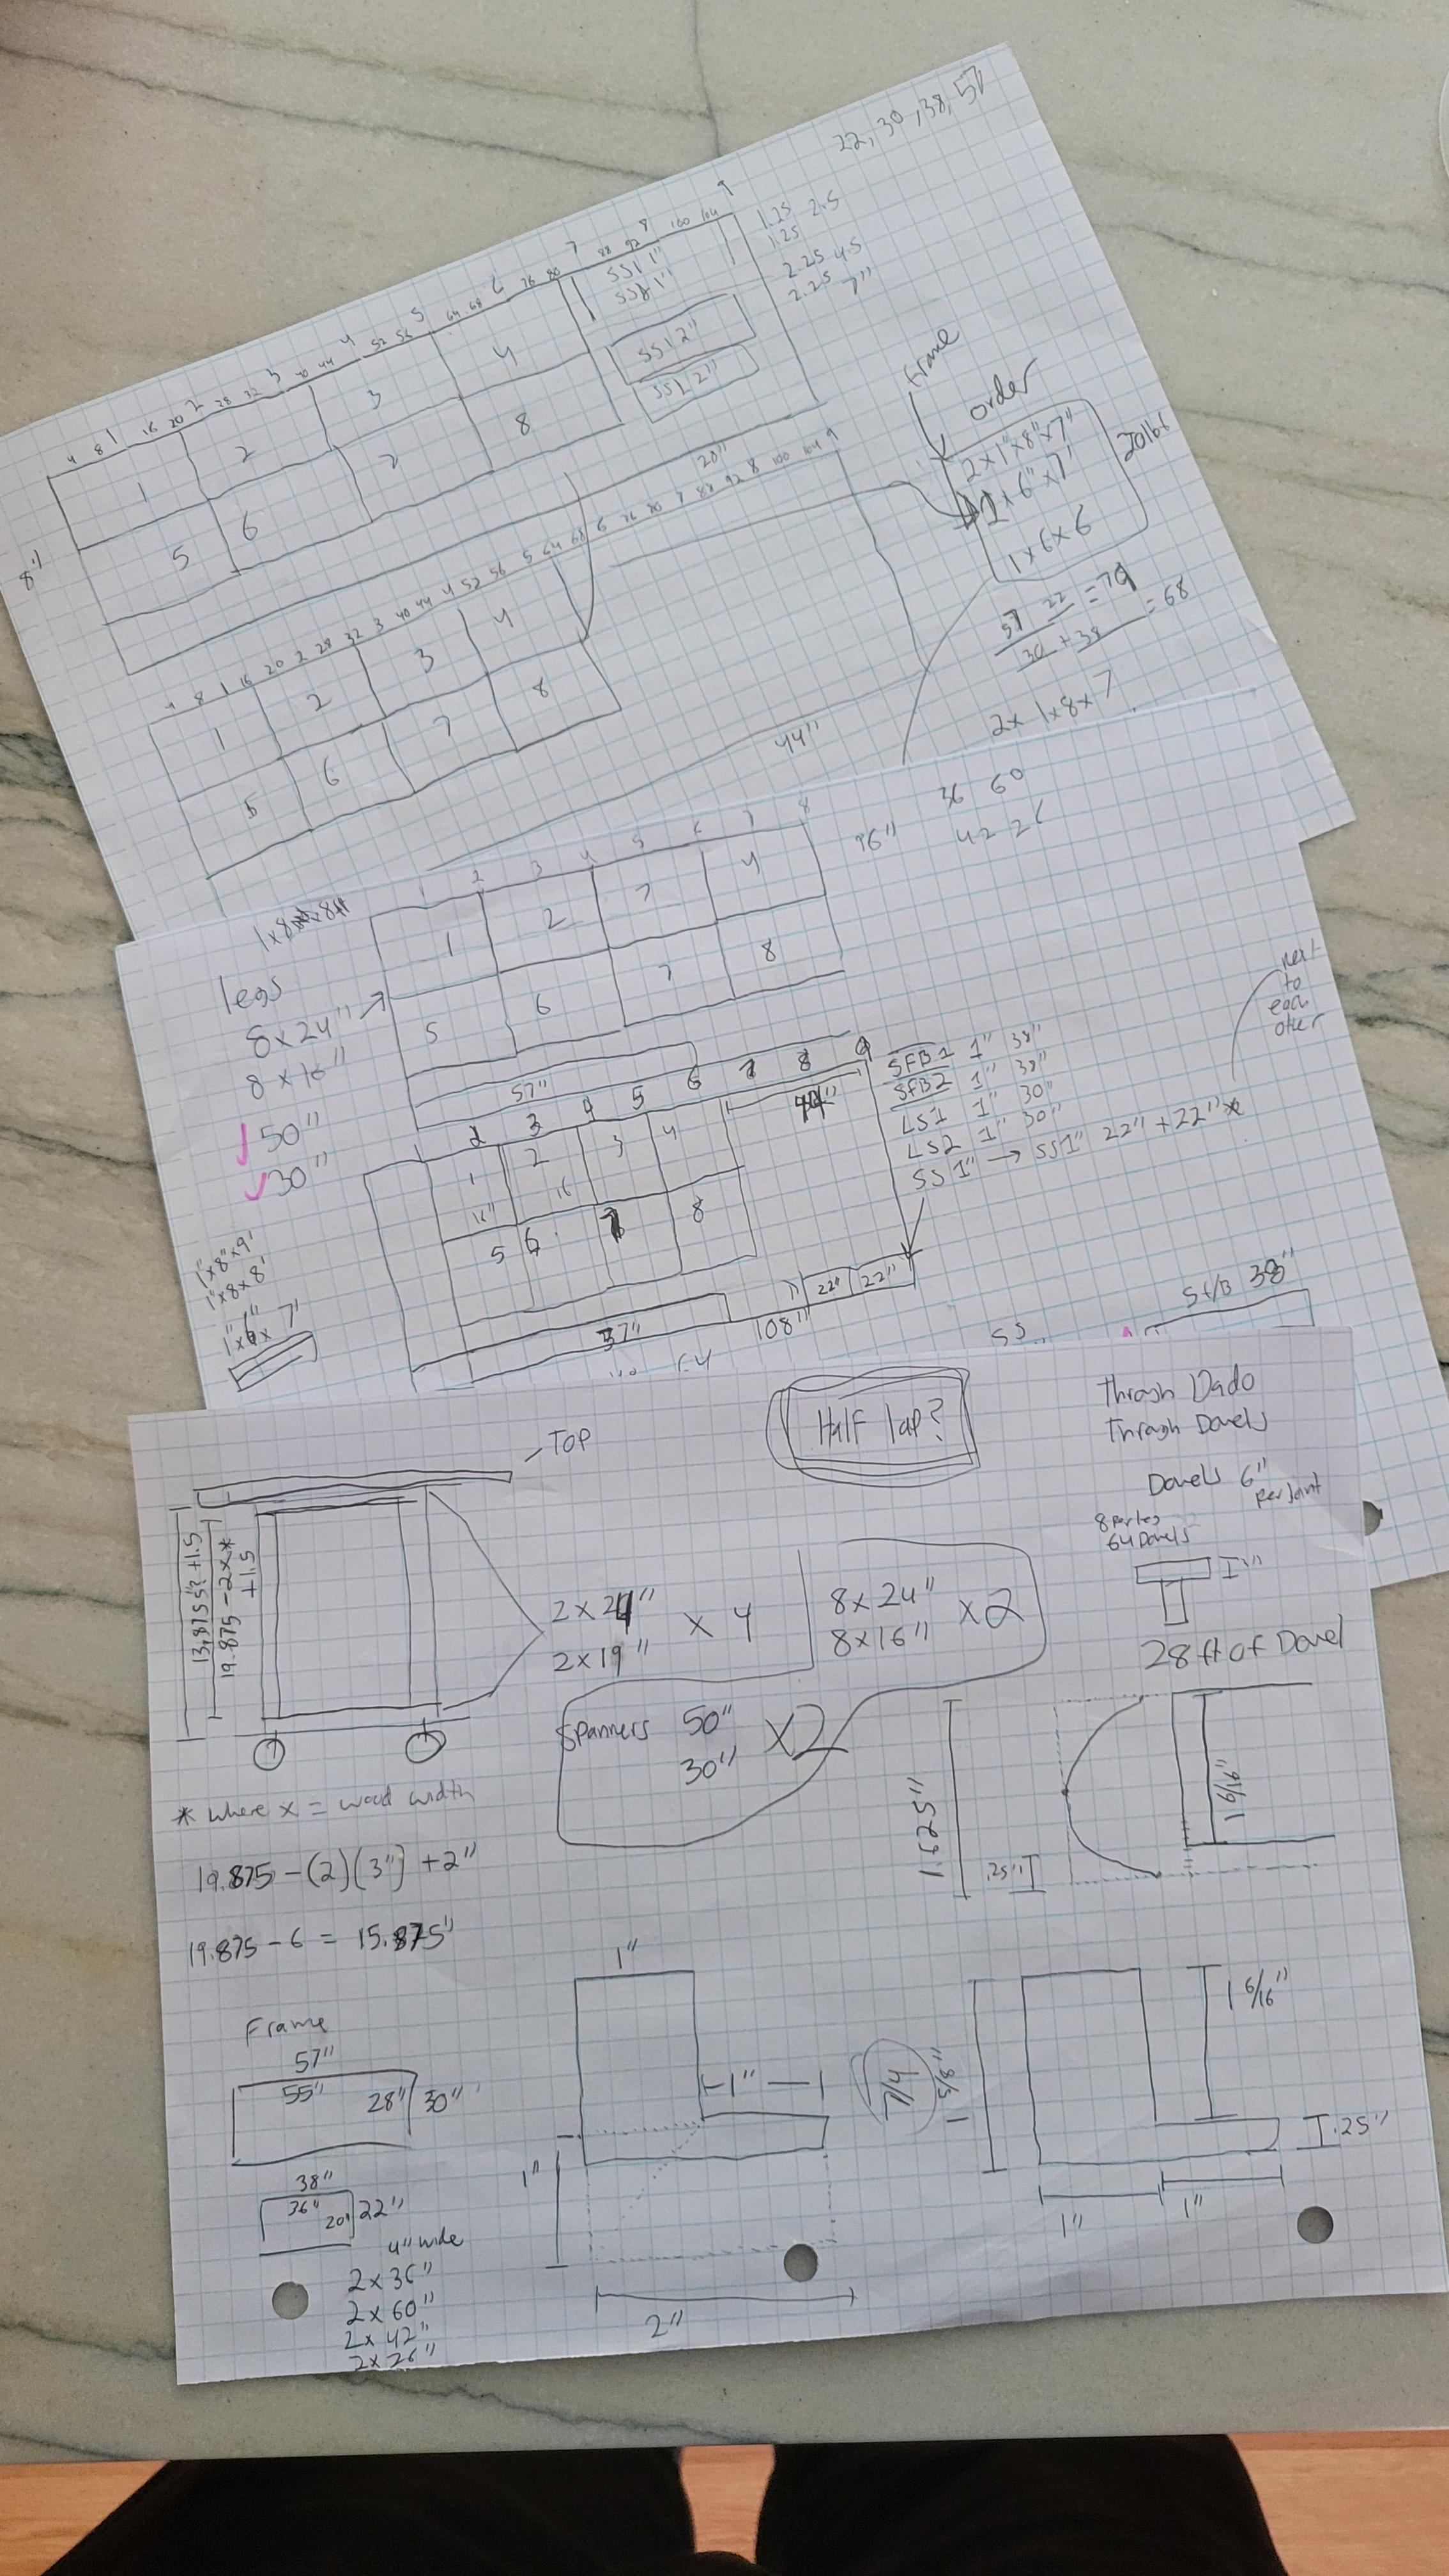 22, 30, 38, 57
4 8 1 16 20 2 28 32 3 40 44 4 52 56 5 64 68 6 76 80 7 88 92 8 100 104 9
1 2 3 4
5 6 7 8
8"
SS1 1"
SS2 1"
SS1 2"
SS2 2"
1.25 2.5
1.25
2.25 4.5
2.25 7"
Frame
order
2x1"x8"x7'
1x6"x7'
1x6x6
20lbf
57 22 = 79
30 + 38 = 68
2x 1x8x7
28"
4 8 1 16 20 2 28 32 3 40 44 4 52 56 5 64 68 6 76 80 7 88 92 8 100 104 9
1 2 3 4
5 6 7 8
44"
36 60
42 26
96"
1 2 3 4 5 6 7 8
1x8x8ft
legs
8x24"
8x16"
50"
30"
1 2 7 4
5 6 7 8
57"
1"x8"x9'
1"x8x8'
1"x6x7'
1 2 3 4 5 6 7 8 9
1 2 3 4
16" 16
5 6 7 8
44"
57"
108"
22" 22"
SFB1 1" 38"
SFB2 1" 38"
LS1 1" 30"
LS2 1" 30"
SS 1" → SS1" 22" + 22"*
next
to
each
other
SS
Sf/B 38"
TOP
Half lap?
Through Dado
Through Dowels
Dowels 6"
per joint
64 Dowels
28 ft of Dowel
13.875 +1.5
19.875 -2x*
+1.5
2x24"
2x19" x4
8x24"
8x16" x2
Spanners 50"
30" x2
* where x = wood width
19.875 - (2)(3") +2"
19.875 - 6 = 15.875"
1.625"
.25"
1 9/16"
Frame
57"
55" 28" 30"
38"
36" 20" 22"
4" wide
2x36"
2x60"
2x42"
2x26"
1"
1"
1"
2"
7/4
1 5/8"
1 6/16"
.25"
1" 1"